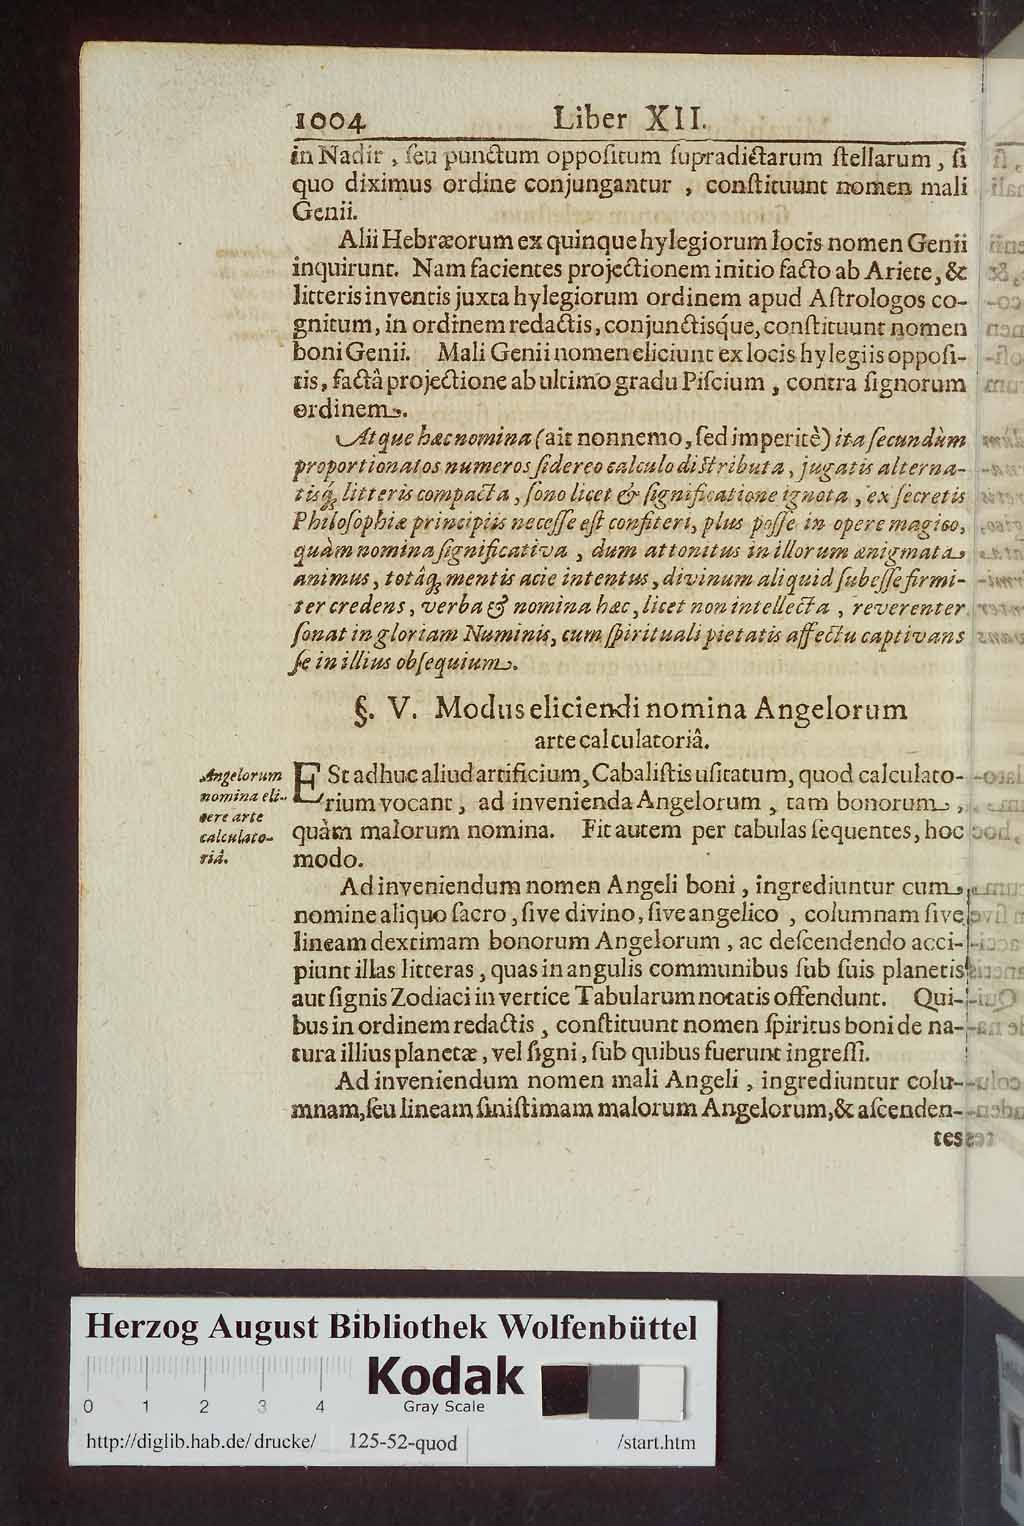 1004 Liber XII.
in Nadir, ſeu punctum oppoſitum ſupradictarum ſtellarum, ſi
quo diximus ordine conjungantur, conſtituunt nomen mali
Genii.
Alii Hebræorum ex quinque hylegiorum locis nomen Genii
inquirunt. Nam facientes projectionem initio facto ab Ariete, &
litteris inventis juxta hylegiorum ordinem apud Aſtrologos co-
gnitum, in ordinem redactis, conjunctisq́ue, conſtituunt nomen
boni Genii. Mali Genii nomen eliciunt ex locis hylegiis oppoſi-
tis, factâ projectione ab ultimo gradu Piſcium, contra ſignorum
ordinem.
Atque hæc nomina (ait nonnemo, ſed imperitè) ita ſecundùm
proportionatos numeros ſidereo calculo diſtributa, jugatis alterna-
tisq́; litteris compacta, ſono licet & ſignificatione ignota, ex ſecretis
Philoſophiæ principiis neceſſe eſt confiteri, plus poſſe in opere magico,
quàm nomina ſignificativa, dum attonitus in illorum ænigmata
animus, totâq́; mentis acie intentus, divinum aliquid ſubeſſe firmi-
ter credens, verba & nomina hæc, licet non intellecta, reverenter
ſonat in gloriam Numinis, cum ſpirituali pietatis affectu captivans
ſe in illius obſequium.
§. V. Modus eliciendi nomina Angelorum
arte calculatoriâ.
Angelorum
nomina eli-
cere arte
calculato-
riâ.
ESt adhuc aliud artificium, Cabaliſtis uſitatum, quod calculato-
rium vocant, ad invenienda Angelorum, tam bonorum,
quàm malorum nomina. Fit autem per tabulas ſequentes, hoc
modo.
Ad inveniendum nomen Angeli boni, ingrediuntur cum
nomine aliquo ſacro, ſive divino, ſive angelico, columnam ſive
lineam dextimam bonorum Angelorum, ac deſcendendo acci-
piunt illas litteras, quas in angulis communibus ſub ſuis planetis
aut ſignis Zodiaci in vertice Tabularum notatis offendunt. Qui-
bus in ordinem redactis, conſtituunt nomen ſpiritus boni de na-
tura illius planetæ, vel ſigni, ſub quibus fuerunt ingreſſi.
Ad inveniendum nomen mali Angeli, ingrediuntur colu-
mnam, ſeu lineam ſiniſtimam malorum Angelorum, & aſcenden-
tes
Herzog August Bibliothek Wolfenbüttel
Kodak
Gray Scale
0 1 2 3 4
http://diglib.hab.de/drucke/ 125-52-quod /start.htm